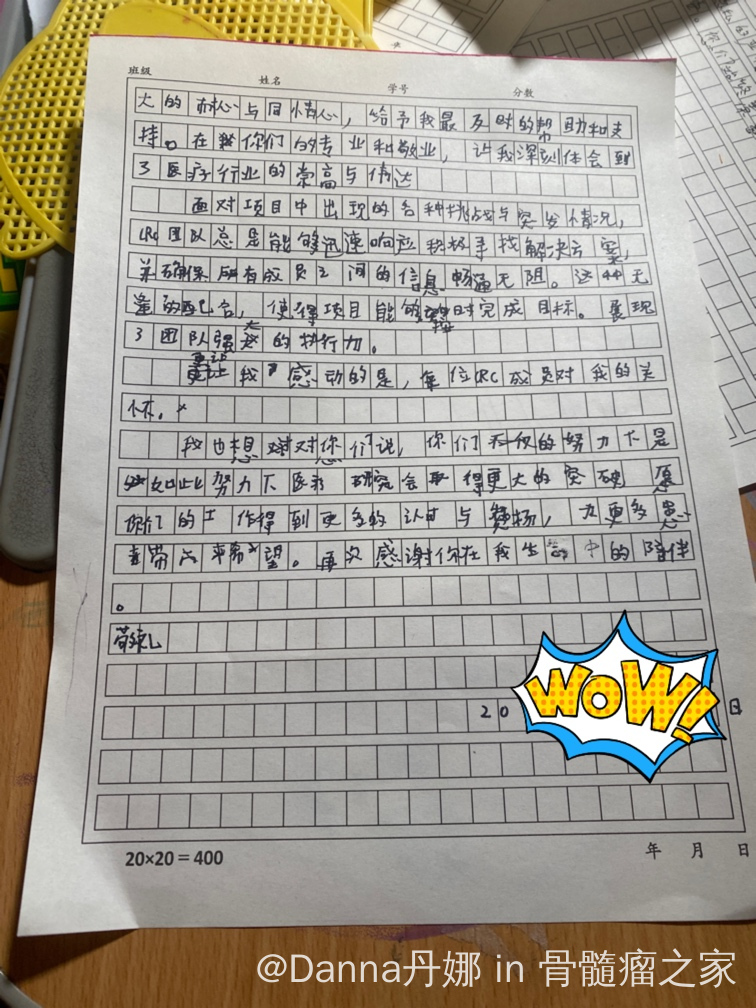 班级 姓名 学号 分数
大的耐心与同情心，给予我最及时的帮助和支
持。在你们的专业和敬业，让我深刻体会到
了医疗行业的崇高与伟达
面对项目中出现的各种挑战与突发情况，
CRC团队总是能够迅速响应积极寻找解决方案，
并确保所有成员之间的信息畅通无阻。这种无
缝的配合，使得项目能够按时完成目标。展现
了团队强大的执行力。
更让我感动的是，每位CRC成员对我的关
怀。
我也想对你们说，你们的努力下
如此努力下医疗研究会取得更大的突破 愿
你们的工作得到更多的认可与赞扬，为更多患
者带来希望。再次感谢你在我生命中的陪伴
。
敬礼
20 日
WOW!
20×20＝400 年 月 日
@Danna丹娜 in 骨髓瘤之家